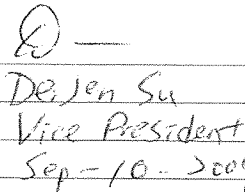 DeJen Su
Vice President
Sep-10-